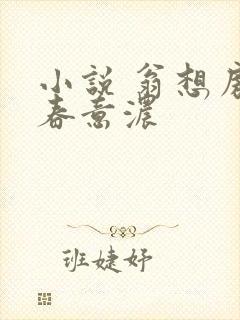 小說 翁想房
春意濃
班婕妤